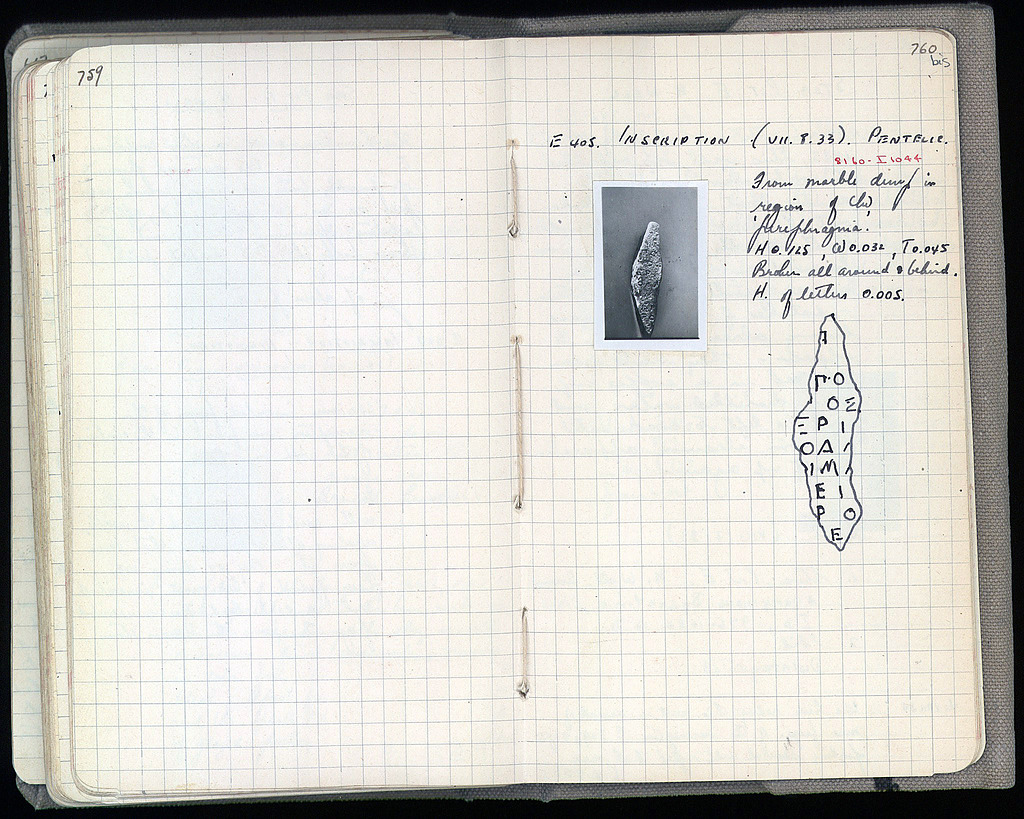 759
760
bis
E 405. INSCRIPTION (VII. 8. 33). PENTELIC.
8160 - I 1044
From marble dump in
region of Ch.
parephragma.
H 0.125, W 0.032, T 0.045
Broken all around & behind.
H. of letters 0.005.
Π
Γ Ο
Ο Ξ
Ξ Ρ Ι
Ο Α
Ι Μ
Ε Ι
Ρ Ο
Ε